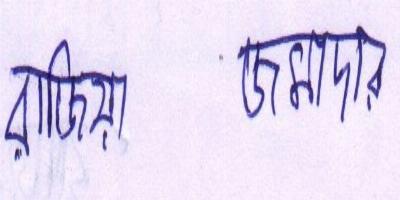 রাজিয়া জমাদার